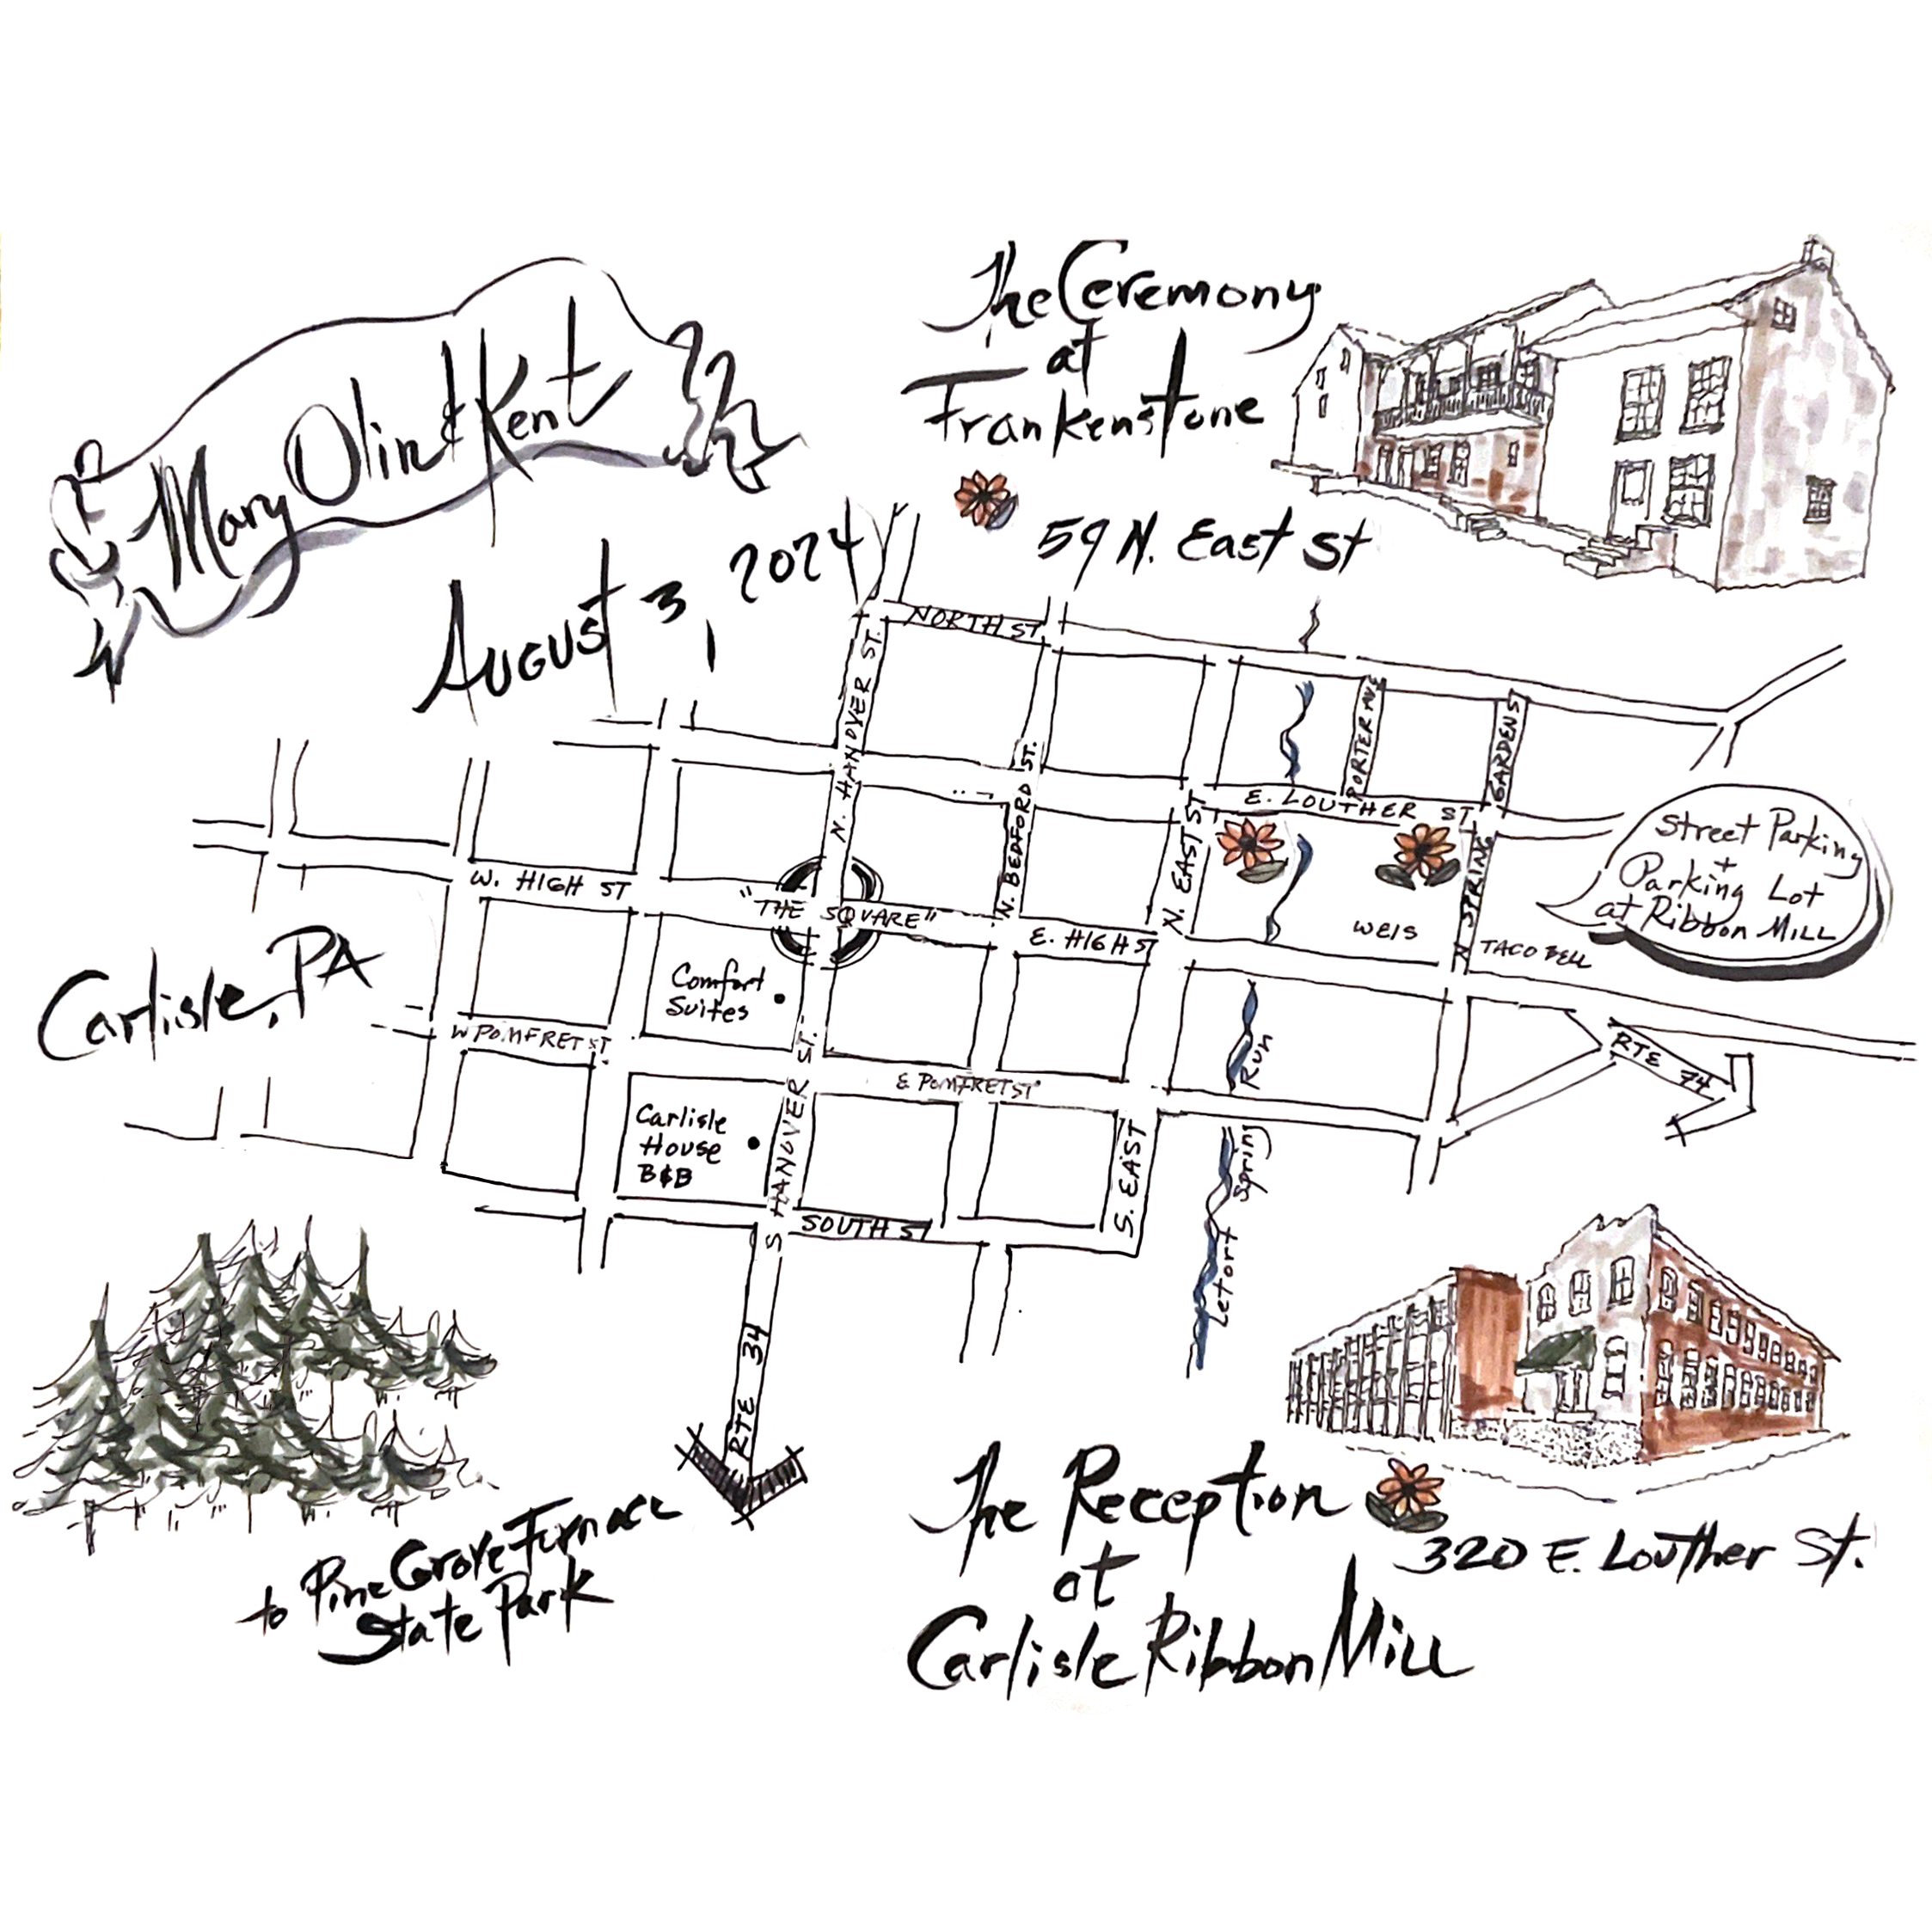 Mary Olin & Kent
August 3, 2024
The Ceremony
at
Frankenstone
59 N. East St
NORTH ST
N. HANOVER ST.
N. BEDFORD ST.
N. EAST ST
PORTER AVE
GARDENS
E. LOUTHER ST
N SPRING
Street Parking
+
Parking Lot
at Ribbon Mill
W. HIGH ST
"THE SQUARE"
E. HIGH ST
WEIS
TACO BELL
Carlisle, PA
Comfort
Suites
W POMFRET ST
E POMFRET ST
RTE 74
Carlisle
House
B&B
S HANOVER ST.
S. EAST
Letort Spring Run
SOUTH ST
RTE 34
to Pine Grove Furnace
State Park
The Reception
at
Carlisle Ribbon Mill
320 E. Louther St.